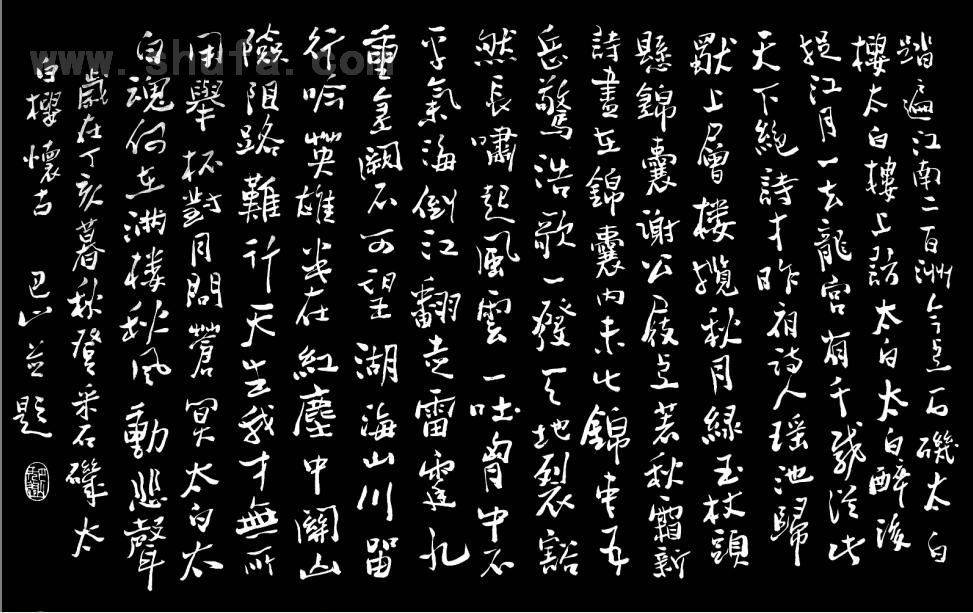 踏遍江南二百洲今石磯太白
樓太白樓上訪太白太白醉後
捉江月一去龍宮有千載從此
天下絕詩才昨宵詩人瑤池歸
獻上層樓攬秋月綠玉杖頭
懸錦囊謝公屐著秋霜新
詩盡在錦囊內未錦五
岳驚浩歌一發天地裂豁
然長嘯起風雲一吐胸中不
平氣海倒江翻走雷霆九
重皇闕不可望湖海山川留
行吟英雄半在紅塵中關山
險阻路難行天生我才無所
用舉杯對月問蒼冥太白太
白魂何在滿樓秋風動悲聲
歲在丁亥暮秋登采石磯太
白樓懷古 巴山並題
www.shufa.com